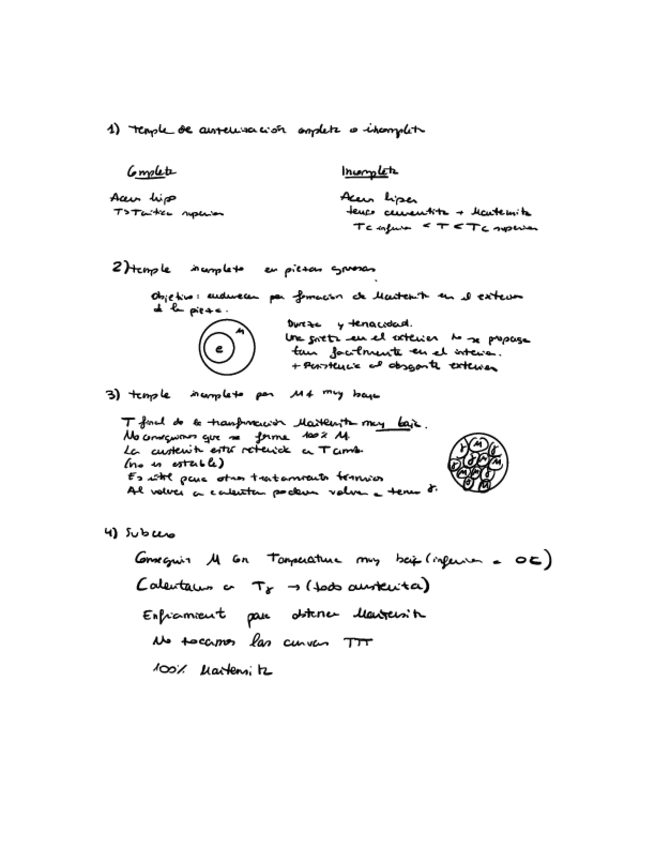 1) temple de austenización completa o incompleta
Completa
Incompleta
Acero hipo
T>Tcrítica superior
Acero hiper
tengo cementita + Martensita
Tc inferior < T < Tc superior
2) temple incompleto en piezas gruesas
Objetivo: endurecer por formación de Martensita en el exterior
d la pieza.
M
e
Dureza y tenacidad.
Una grieta en el exterior no se propaga
tan facilmente en el interior.
+ Resistencia al desgaste exterior
3) temple incompleto por Mf muy bajo
T final de la transformación Martensita muy baja.
No conseguimos que se forme 100% M.
La austenita está retenida a T amb.
(no es estable)
Es útil para otros tratamientos térmicos
Al volver a calentar podemos volver a tener γ.
γ M γ M M
4) Subcero
Conseguir M con Temperatura muy baja (inferior a 0C)
Calentamos a Tγ → (todo austenita)
Enfriamient para obtener Martensita
No tocamos las curvas TTT
100% Martensita